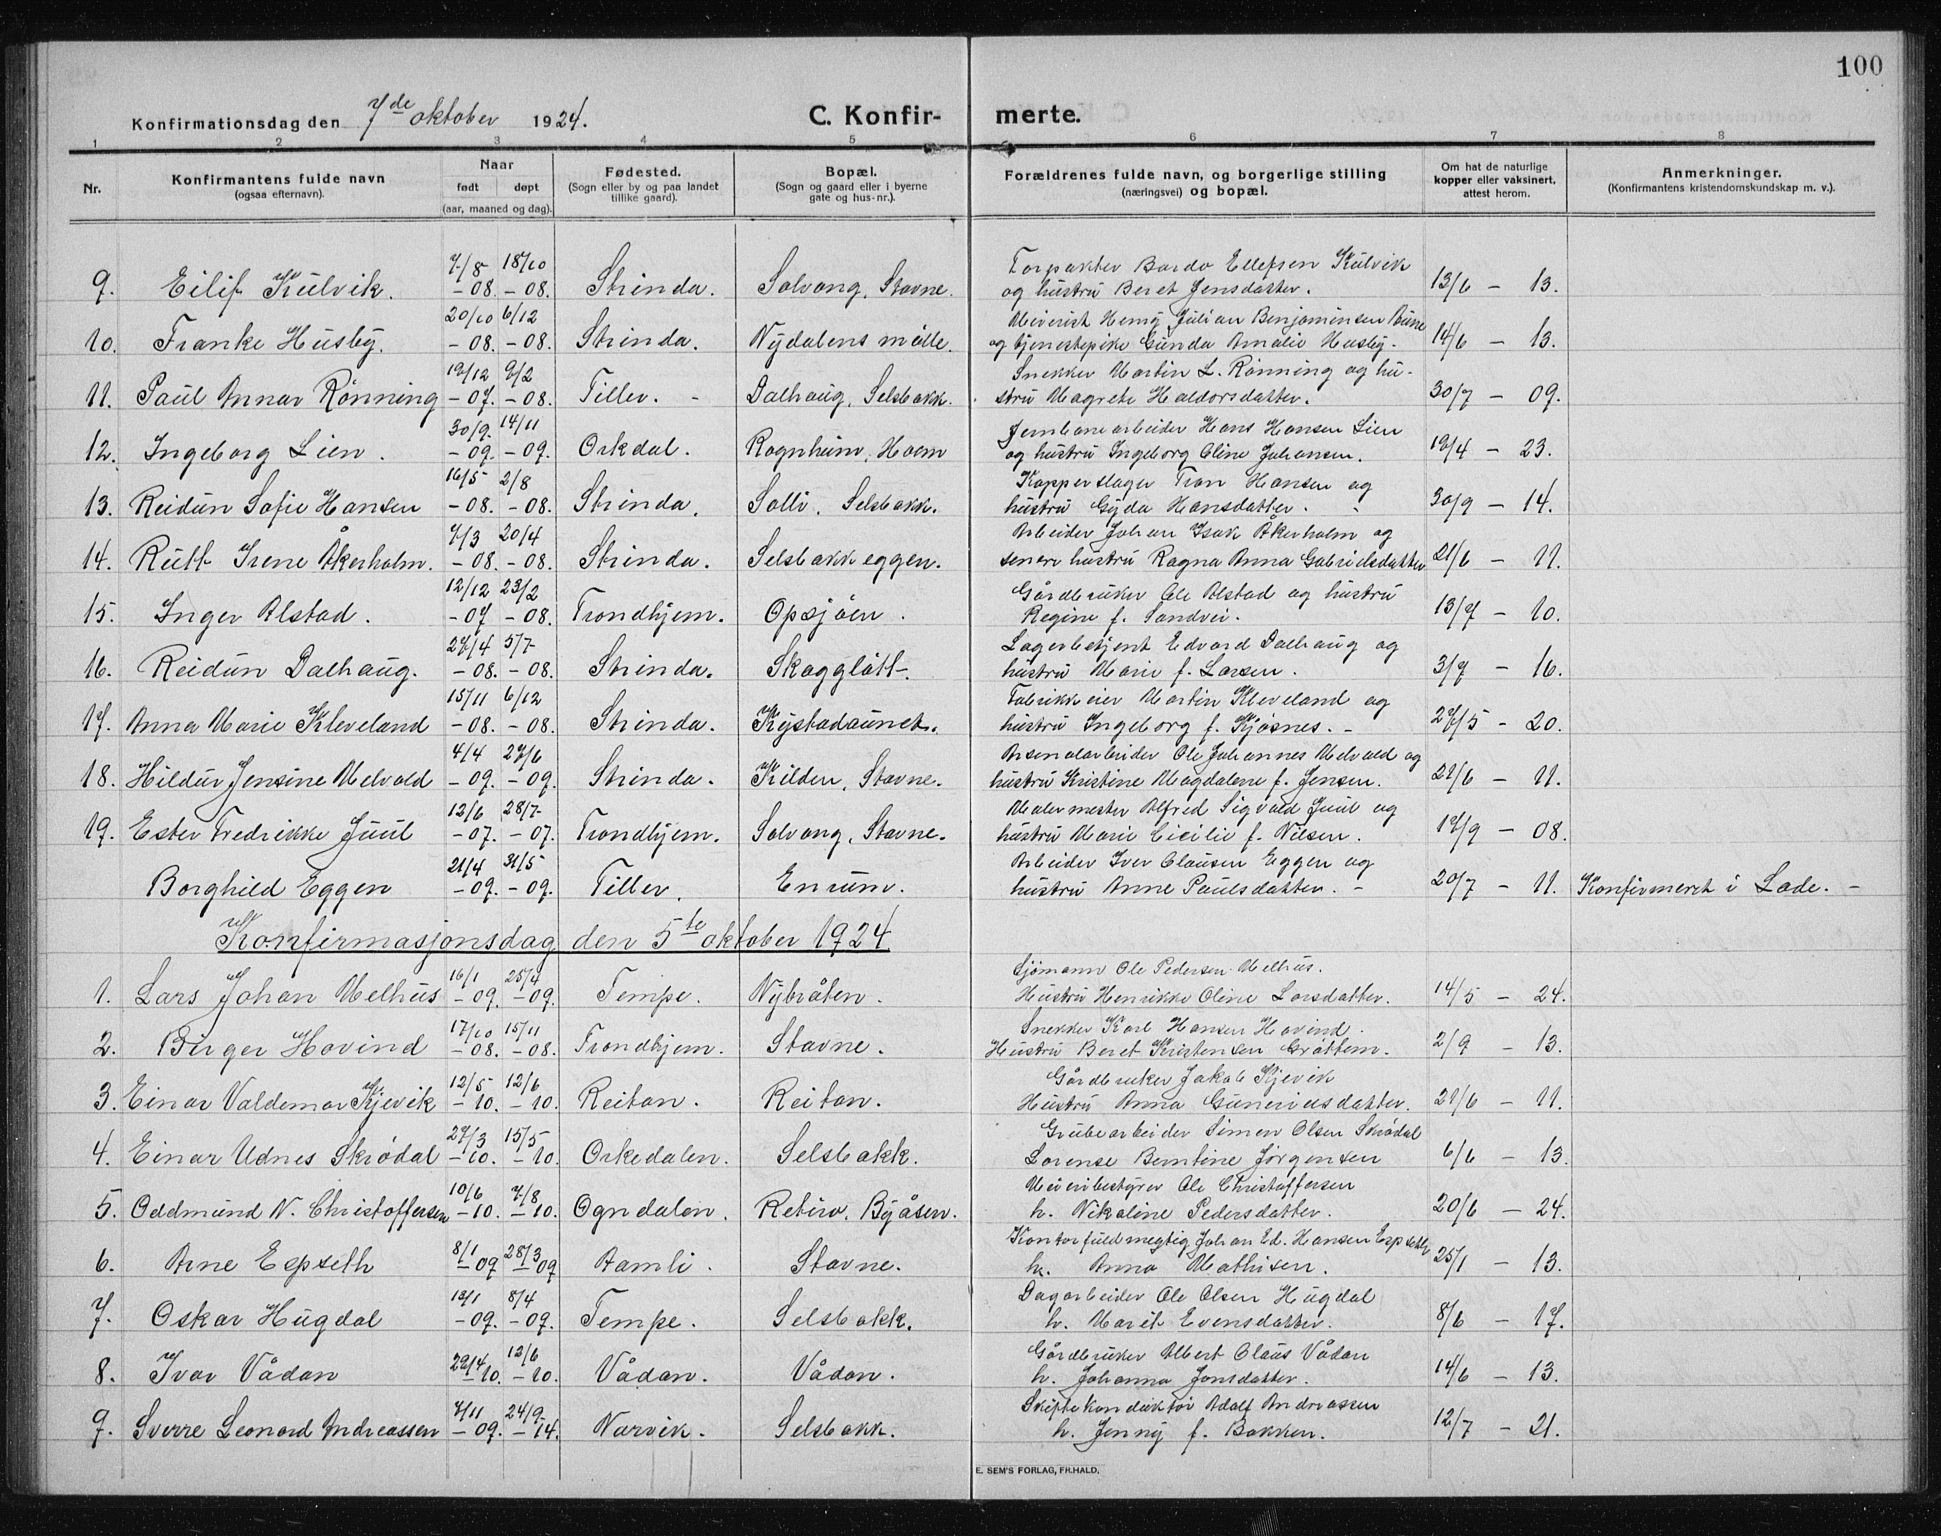 100
Konfirmationsdag den 7de oktober 1924. C. Konfirmerte.
1 2 3 4 5 6 7 8
Nr. Konfirmantens fulde navn (ogsaa efternavn). Naar født døpt (aar, maaned og dag). Fødested. (Sogn eller by og paa landet tillike gaard). Bopæl. (Sogn og gaard eller i byerne gate og hus-nr.). Forældrenes fulde navn, og borgerlige stilling (næringsvei) og bopæl. Om hat de naturlige kopper eller vaksinert, attest herom. Anmerkninger. (Konfirmantens kristendomskundskap m. v.).
7/8 18/10 Torpakter Bardo Ellefsen Kulvik
9. Eilif Kulvik. -08. -08. Strinda. Solvang, Stavne. og hustru Beret Jensdatter. 13/6 - 13.
20/10 6/12 Meierist Henry Julian Benjaminsen
10. Franke Husby. -08. -08. Strinda. Nydalens mölle. og tjenestepike Gunda Amalie Husby. 14/6 - 13.
19/12 9/2 Snekker Martin L. Rønning og hu-
11. Paul Annar Rønning -07. -08. Tiller. - Dalhaug, Selsbakk. stru Magrete Haldorsdatter. 30/7 - 09.
30/9. 14/11 Jernbanearbeider Hans Hansen Lien
12. Ingeborg Lien. -09. -09. Orkdal. Rognheim, Hoem og hustru Ingeborg Oline Johansen. 19/4 - 23.
16/5 2/8 Kopperslager Tron Hansen og
13. Reidun Sofie Hansen -08. -08. Strinda. Solli, Selsbakk. hustru Gyda Hansdatter. 30/9 - 14.
7/3 20/4 Arbeider Johan Isak Åkerholm og
14. Rutt Irene Åkerholm. -08. -08. Strinda. Selsbakkeggen. senere hustru Ragna Anna Gabrielsdatter 21/6 - 11.
12/12 23/2 Gårdbruker Ole Alstad og hustru
15. Inger Alstad. -07 -08. Trondhjem. Opsjöen. Regine f. Sandvei. 13/7 - 10.
27/4 5/7 Lagerbetjent Edvard Dalhaug og
16. Reidun Dalhaug. -08. -08. Strinda. Skogglött. hustru Marie f. Larsen. 3/7 - 16.
15/11 6/12 Fabrikkeier Martin Kleveland og
17. Anna Marie Kleveland -08. -08. Strinda. Kystadaunet. hustru Ingeborg f. Kjøsnes. - 27/5 - 20.
4/4 27/6 Arsenalarbeider Ole Johannes Melvald og
18. Hildur Jensine Melvald -09. -09. Strinda. Kilden, Stavne. hustru Kristine Magdalene f. Jensen. 21/6 - 11.
12/6 28/7 Malermester Alfred Sigvald Juul og
19. Ester Fredrikke Juul -07. -07. Trondhjem. Solvang, Stavne. hustru Marie Cicilie f. Nilsen. 17/9 - 08.
21/4 31/5 Arbeider Iver Clausen Eggen og
Borghild Eggen -09. -09. Tiller. Enrum. hustru Anne Paulsdatter. - 20/7 - 11. Konfirmert i Lade. -
Konfirmasjonsdag den 5te oktober 1924
16/1 25/4 Sjömann Ole Pedersen Melhus.
1. Lars Johan Melhus -09. -09. Tempe. Nybråten. Hustru Henrikke Oline Larsdatter. 14/5 - 24.
17/10 15/11 Snekker Karl Hansen Hovind.
2. Birger Hovind -08. -08. Trondhjem. Stavne. Hustru Beret Kristensen Gröttem. 2/9 - 13.
12/5 12/6 Gårdbruker Jakob Kjevik
3. Einar Valdemar Kjevik -10. -10. Reitan. Reitan. Hustru Anna Guneriusdatter. 21/6 - 11.
27/3 15/5 Grubearbeider Simen Olsen Skrödal
4. Einar Udnes Skrödal -10. -10. Orkedalen. Selsbakk. Lorense Berntine Jörgensen 6/6 - 13.
10/6 7/8 Meieribestyrer Ole Christoffersen
5. Oddmund N. Christoffersen -10. -10. Ogndalen. Retiro, Byåsen. h. Nikoline Pedersdatter. 20/6 - 24.
8/1 28/3 Kontorfuldmegtig Johan Ed. Hansen Espseth
6. Arne Espseth -09 -09 Aamli. Stavne. h. Anna Mathisen. 25/1 - 13.
12/1 8/4 Dagarbeider Ole Olsen Hugdal
7. Oskar Hugdal -09. -09. Tempe. Selsbakk. h. Marit Evensdatter. 8/6 - 17.
29/4 12/6 Gårdbruker Albert Claus Vådan
8. Ivar Vådan -10. -10. Vådan. Vådan. h. Johanna Jonsdatter. 14/6 - 13.
7/11 24/9 Skiftekonduktör Adolf Andreassen
9. Sverre Leonard Andreassen -09. -14. Narvik. Selsbakk. h. Jenny f. Bakken. 12/7 - 21.
E. SEM'S FORLAG, FR.HALD.